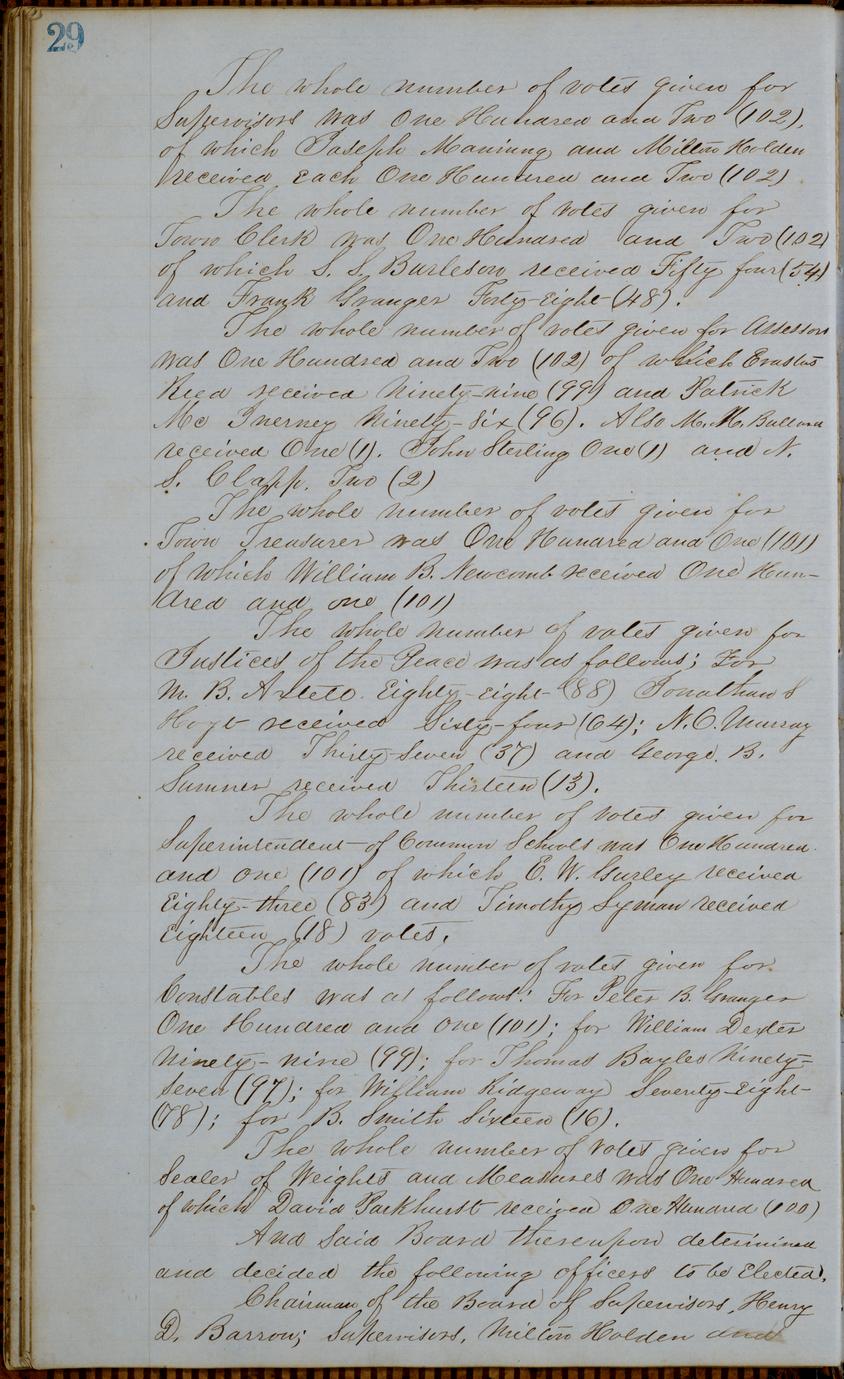 29
The whole number of votes given for
Supervisors was One Hundred and Two (102),
of which Joseph Manning and Milton Holden
received each One Hundred and Two (102)
The whole number of votes given for
Town Clerk was One Hundred and Two (102)
of which S. S. Burleson received Fifty four (54)
and Frank Granger Forty-Eight (48).
The whole number of votes given for Assessors
was One Hundred and Two (102) of which Erastus
Reed received Ninety-nine (99) and Patrick
Mc Inerney Ninety-Six (96). Also M. M. Ballard
received One (1). John Sterling One (1) and N.
S. Clapp. Two (2)
The whole number of votes given for
Town Treasurer was One Hundred and One (101)
of which William B. Newcomb received One Hun-
dred and one (101)
The whole number of votes given for
Justices of the Peace was as follows; For
M. B. Axtell. Eighty-Eight (88) Jonathan S
Hoyt received Sixty-four (64); N. C. Murray
received Thirty-Seven (37) and George. B.
Sumner received Thirteen (13).
The whole number of votes given for
Superintendent of Common Schools was One Hundred
and one (101) of which E. W. Gurley received
Eighty-three (83) and Timothy Lyman received
Eighteen (18) votes.
The whole number of votes given for
Constables was as follows: For Peter B. Granger
One Hundred and One (101); for William Dexter
Ninety-nine (99); for Thomas Bayles Ninety-
Seven (97); for William Ridgeway Seventy-Eight
(78); for B. Smith Sixteen (16).
The whole number of votes given for
Sealer of Weights and Measures was One Hundred
of which David Parkhurst received One Hundred (100)
And Said Board thereupon determined
and decided the following officers to be Elected.
Chairman of the Board of Supervisors, Henry
D. Barron; Supervisors, Milton Holden and